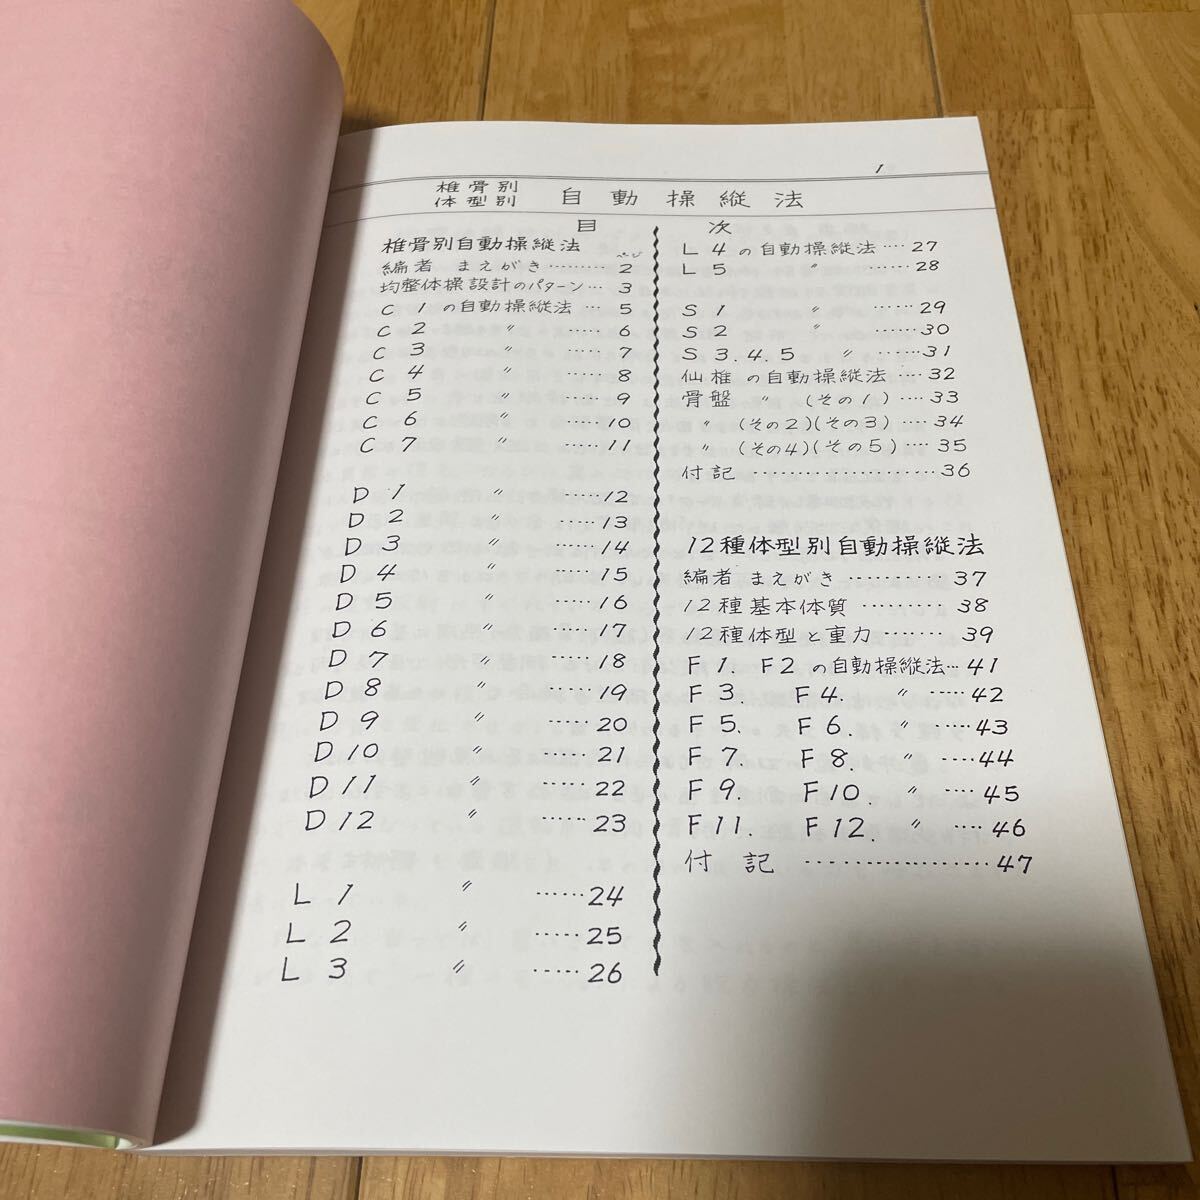 1
椎骨別
体型別 自動操縦法
目次
椎骨別自動操縦法
ページ
編者 まえがき………2
均整体操設計のパターン…3
C 1 の自動操縦法 …5
C 2 〃 ……6
C 3 〃 ……7
C 4 〃 ……8
C 5 〃 ……9
C 6 〃 ……10
C 7 〃 ……11
D 1 〃 ……12
D 2 〃 ……13
D 3 〃 ……14
D 4 〃 ……15
D 5 〃 ……16
D 6 〃 ……17
D 7 〃 ……18
D 8 〃 ……19
D 9 〃 ……20
D 10 〃 ……21
D 11 〃 ……22
D 12 〃 ……23
L 1 〃 ……24
L 2 〃 ……25
L 3 〃 ……26
L 4 の自動操縦法…‥27
L 5 〃 ……28
S 1 〃 ……29
S 2 〃 ……30
S 3.4.5 〃 ……31
仙椎の自動操縦法 …‥32
骨盤 〃 (その1)…‥33
〃 (その2)(その3)…‥34
〃 (その4)(その5)…‥35
付記 …………………36
12種体型別自動操縦法
編者 まえがき…………37
12種基本体質 ………38
12種体型と重力……‥39
F 1. F 2 の自動操縦法…41
F 3. F 4. 〃 ……42
F 5. F 6. 〃 ……43
F 7. F 8. 〃 ……44
F 9. F 10. 〃 …‥45
F 11. F 12. 〃 …‥46
付記 …………………47